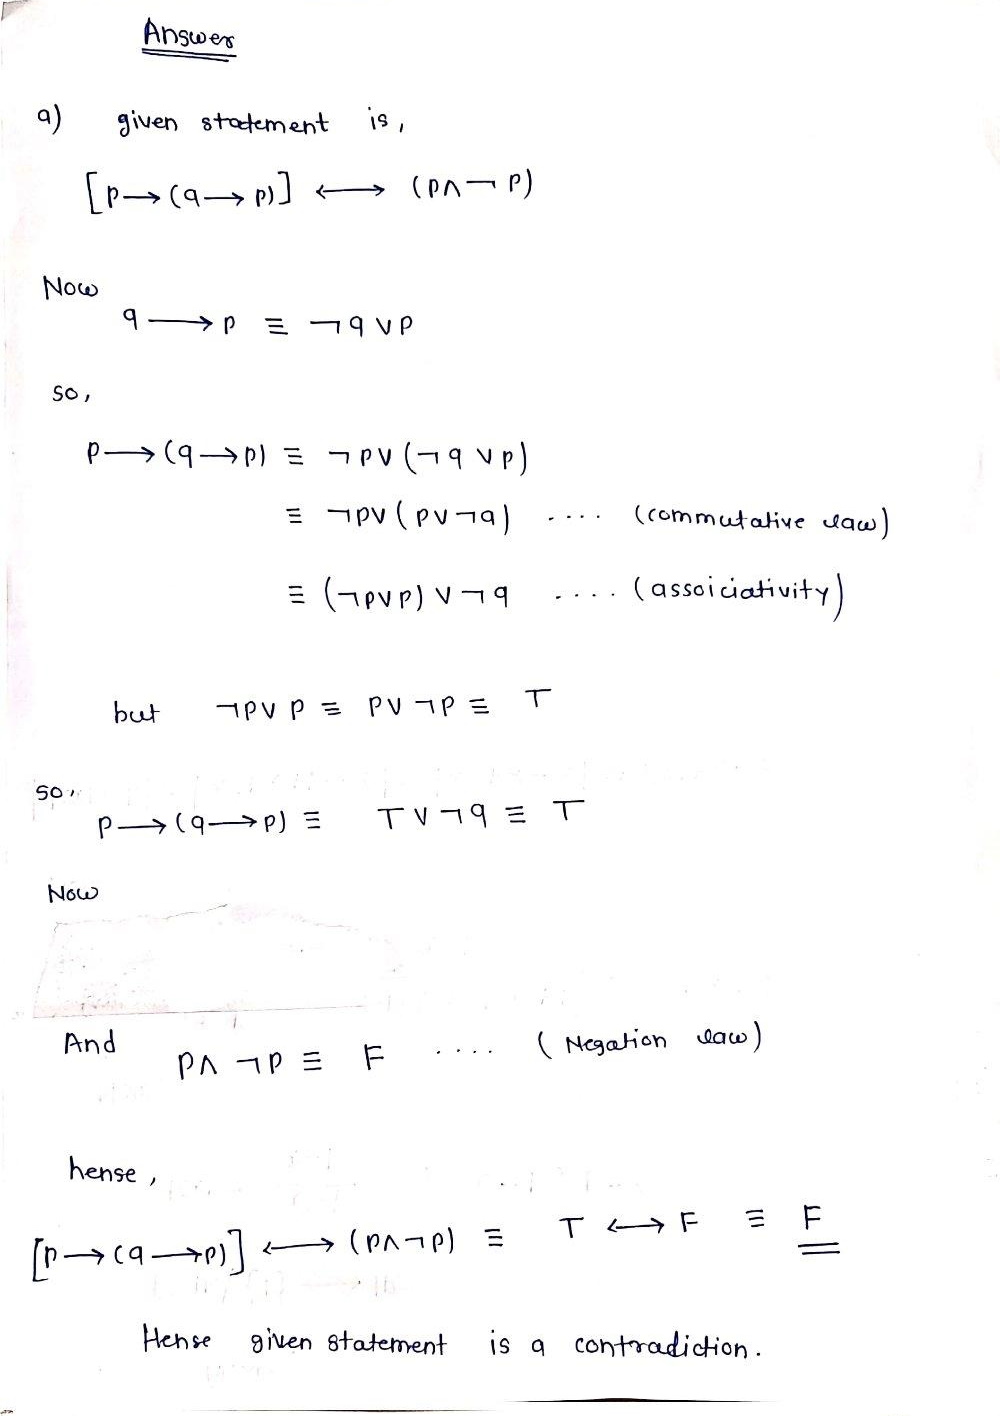 Answer
a) given statement is,
[p→(q→p)] ⟷ (p∧¬p)
Now
q ⟶ p ≡ ¬q ∨ p
so,
p⟶(q→p) ≡ ¬p∨(¬q ∨p)
≡ ¬p∨(p∨¬q) .... (commutative law)
≡ (¬p∨p) ∨ ¬q .... (assoiciativity)
but ¬p∨ p ≡ p∨ ¬p ≡ T
so,
p⟶(q⟶p) ≡ T ∨ ¬q ≡ T
Now
And
p∧ ¬p ≡ F .... (Negation law)
hense,
[p→(q⟶p)] ⟷ (p∧¬p) ≡ T ⟷ F ≡ F
Hense given statement is a contradiction.